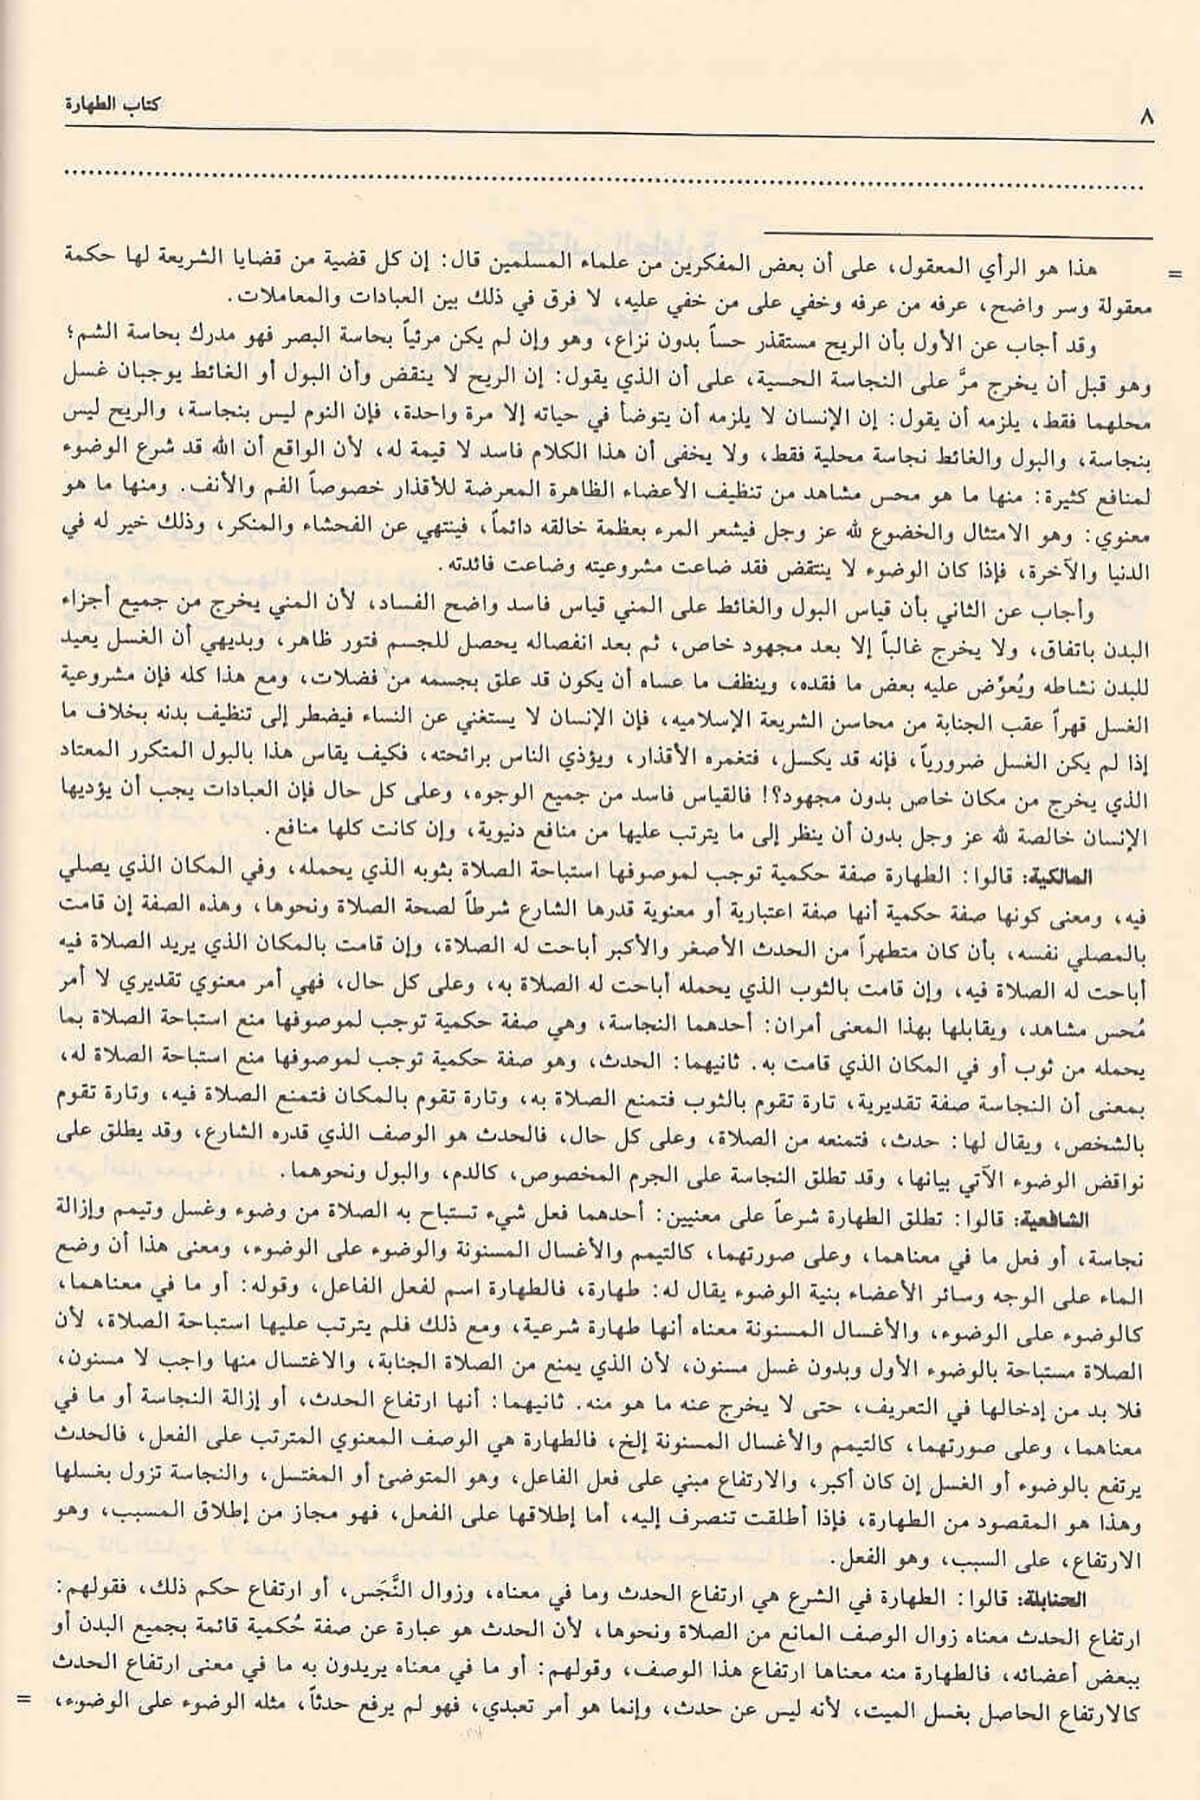 ٨
كتاب الطهارة
= هذا هو الرأي المعقول، على أن بعض المفكرين من علماء المسلمين قال: إن كل قضية من قضايا الشريعة لها حكمة
معقولة وسر واضح، عرفه من عرفه وخفي على من خفي عليه، لا فرق في ذلك بين العبادات والمعاملات.
وقد أجاب عن الأول بأن الريح مستقذر حساً بدون نزاع، وهو وإن لم يكن مرئياً بحاسة البصر فهو مدرك بحاسة الشم؛
وهو قبل أن يخرج مرَّ على النجاسة الحسية، على أن الذي يقول: إن الريح لا ينقض وأن البول أو الغائط يوجبان غسل
محلهما فقط، يلزمه أن يقول: إن الإنسان لا يلزمه أن يتوضأ في حياته إلا مرة واحدة، فإن النوم ليس بنجاسة، والريح ليس
بنجاسة، والبول والغائط نجاسة محلية فقط، ولا يخفى أن هذا الكلام فاسد لا قيمة له، لأن الواقع أن الله قد شرع الوضوء
لمنافع كثيرة: منها ما هو محس مشاهد من تنظيف الأعضاء الظاهرة المعرضة للأقذار خصوصاً الفم والأنف. ومنها ما هو
معنوي: وهو الامتثال والخضوع لله عز وجل فيشعر المرء بعظمة خالقه دائماً، فينتهي عن الفحشاء والمنكر، وذلك خير له في
الدنيا والآخرة، فإذا كان الوضوء لا ينتقض فقد ضاعت مشروعيته وضاعت فائدته.
وأجاب عن الثاني بأن قياس البول والغائط على المني قياس فاسد واضح الفساد، لأن المني يخرج من جميع أجزاء
البدن باتفاق، ولا يخرج غالباً إلا بعد مجهود خاص، ثم بعد انفصاله يحصل للجسم فتور ظاهر، وبديهي أن الغسل يعيد
للبدن نشاطه ويُعوِّض عليه بعض ما فقده، وينظف ما عساه أن يكون قد علق بجسمه من فضلات، ومع هذا كله فإن مشروعية
الغسل قهراً عقب الجنابة من محاسن الشريعة الإسلاميه، فإن الإنسان لا يستغني عن النساء فيضطر إلى تنظيف بدنه بخلاف ما
إذا لم يكن الغسل ضرورياً، فإنه قد يكسل، فتغمره الأقذار، ويؤذي الناس برائحته، فكيف يقاس هذا بالبول المتكرر المعتاد
الذي يخرج من مكان خاص بدون مجهود؟! فالقياس فاسد من جميع الوجوه، وعلى كل حال فإن العبادات يجب أن يؤديها
الإنسان خالصة لله عز وجل بدون أن ينظر إلى ما يترتب عليها من منافع دنيوية، وإن كانت كلها منافع.
المالكية: قالوا: الطهارة صفة حكمية توجب لموصوفها استباحة الصلاة بثوبه الذي يحمله، وفي المكان الذي يصلي
فيه، ومعنى كونها صفة حكمية أنها صفة اعتبارية أو معنوية قدرها الشارع شرطاً لصحة الصلاة ونحوها، وهذه الصفة إن قامت
بالمصلي نفسه، بأن كان متطهراً من الحدث الأصغر والأكبر أباحت له الصلاة، وإن قامت بالمكان الذي يريد الصلاة فيه
أباحت له الصلاة فيه، وإن قامت بالثوب الذي يحمله أباحت له الصلاة به، وعلى كل حال، فهي أمر معنوي تقديري لا أمر
مُحس مشاهد، ويقابلها بهذا المعنى أمران: أحدهما النجاسة، وهي صفة حكمية توجب لموصوفها منع استباحة الصلاة بما
يحمله من ثوب أو في المكان الذي قامت به. ثانيهما: الحدث، وهو صفة حكمية توجب لموصوفها منع استباحة الصلاة له،
بمعنى أن النجاسة صفة تقديرية، تارة تقوم بالثوب فتمنع الصلاة به، وتارة تقوم بالمكان فتمنع الصلاة فيه، وتارة تقوم
بالشخص، ويقال لها: حدث، فتمنعه من الصلاة، وعلى كل حال، فالحدث هو الوصف الذي قدره الشارع، وقد يطلق على
نواقض الوضوء الآتي بيانها، وقد تطلق النجاسة على الجرم المخصوص، كالدم، والبول ونحوهما.
الشافعية: قالوا: تطلق الطهارة شرعاً على معنيين: أحدهما فعل شيء تستباح به الصلاة من وضوء وغسل وتيمم وإزالة
نجاسة، أو فعل ما في معناهما، وعلى صورتهما، كالتيمم والأغسال المسنونة والوضوء على الوضوء، ومعنى هذا أن وضع
الماء على الوجه وسائر الأعضاء بنية الوضوء يقال له: طهارة، فالطهارة اسم لفعل الفاعل، وقوله: أو ما في معناهما،
كالوضوء على الوضوء، والأغسال المسنونة معناه أنها طهارة شرعية، ومع ذلك فلم يترتب عليها استباحة الصلاة، لأن
الصلاة مستباحة بالوضوء الأول وبدون غسل مسنون، لأن الذي يمنع من الصلاة الجنابة، والاغتسال منها واجب لا مسنون،
فلا بد من إدخالها في التعريف، حتى لا يخرج عنه ما هو منه. ثانيهما: أنها ارتفاع الحدث، أو إزالة النجاسة أو ما في
معناهما، وعلى صورتهما، كالتيمم والأغسال المسنونة إلخ، فالطهارة هي الوصف المعنوي المترتب على الفعل، فالحدث
يرتفع بالوضوء أو الغسل إن كان أكبر، والارتفاع مبني على فعل الفاعل، وهو المتوضئ أو المغتسل، والنجاسة تزول بغسلها
وهذا هو المقصود من الطهارة، فإذا أطلقت تنصرف إليه، أما إطلاقها على الفعل، فهو مجاز من إطلاق المسبب، وهو
الارتفاع، على السبب، وهو الفعل.
الحنابلة: قالوا: الطهارة في الشرع هي ارتفاع الحدث وما في معناه، وزوال النَّجَس، أو ارتفاع حكم ذلك، فقولهم:
ارتفاع الحدث معناه زوال الوصف المانع من الصلاة ونحوها، لأن الحدث هو عبارة عن صفة حُكمية قائمة بجميع البدن أو
ببعض أعضائه، فالطهارة منه معناها ارتفاع هذا الوصف، وقولهم: أو ما في معناه يريدون به ما في معنى ارتفاع الحدث
كالارتفاع الحاصل بغسل الميت، لأنه ليس عن حدث، وإنما هو أمر تعبدي، فهو لم يرفع حدثاً، مثله الوضوء على الوضوء، =